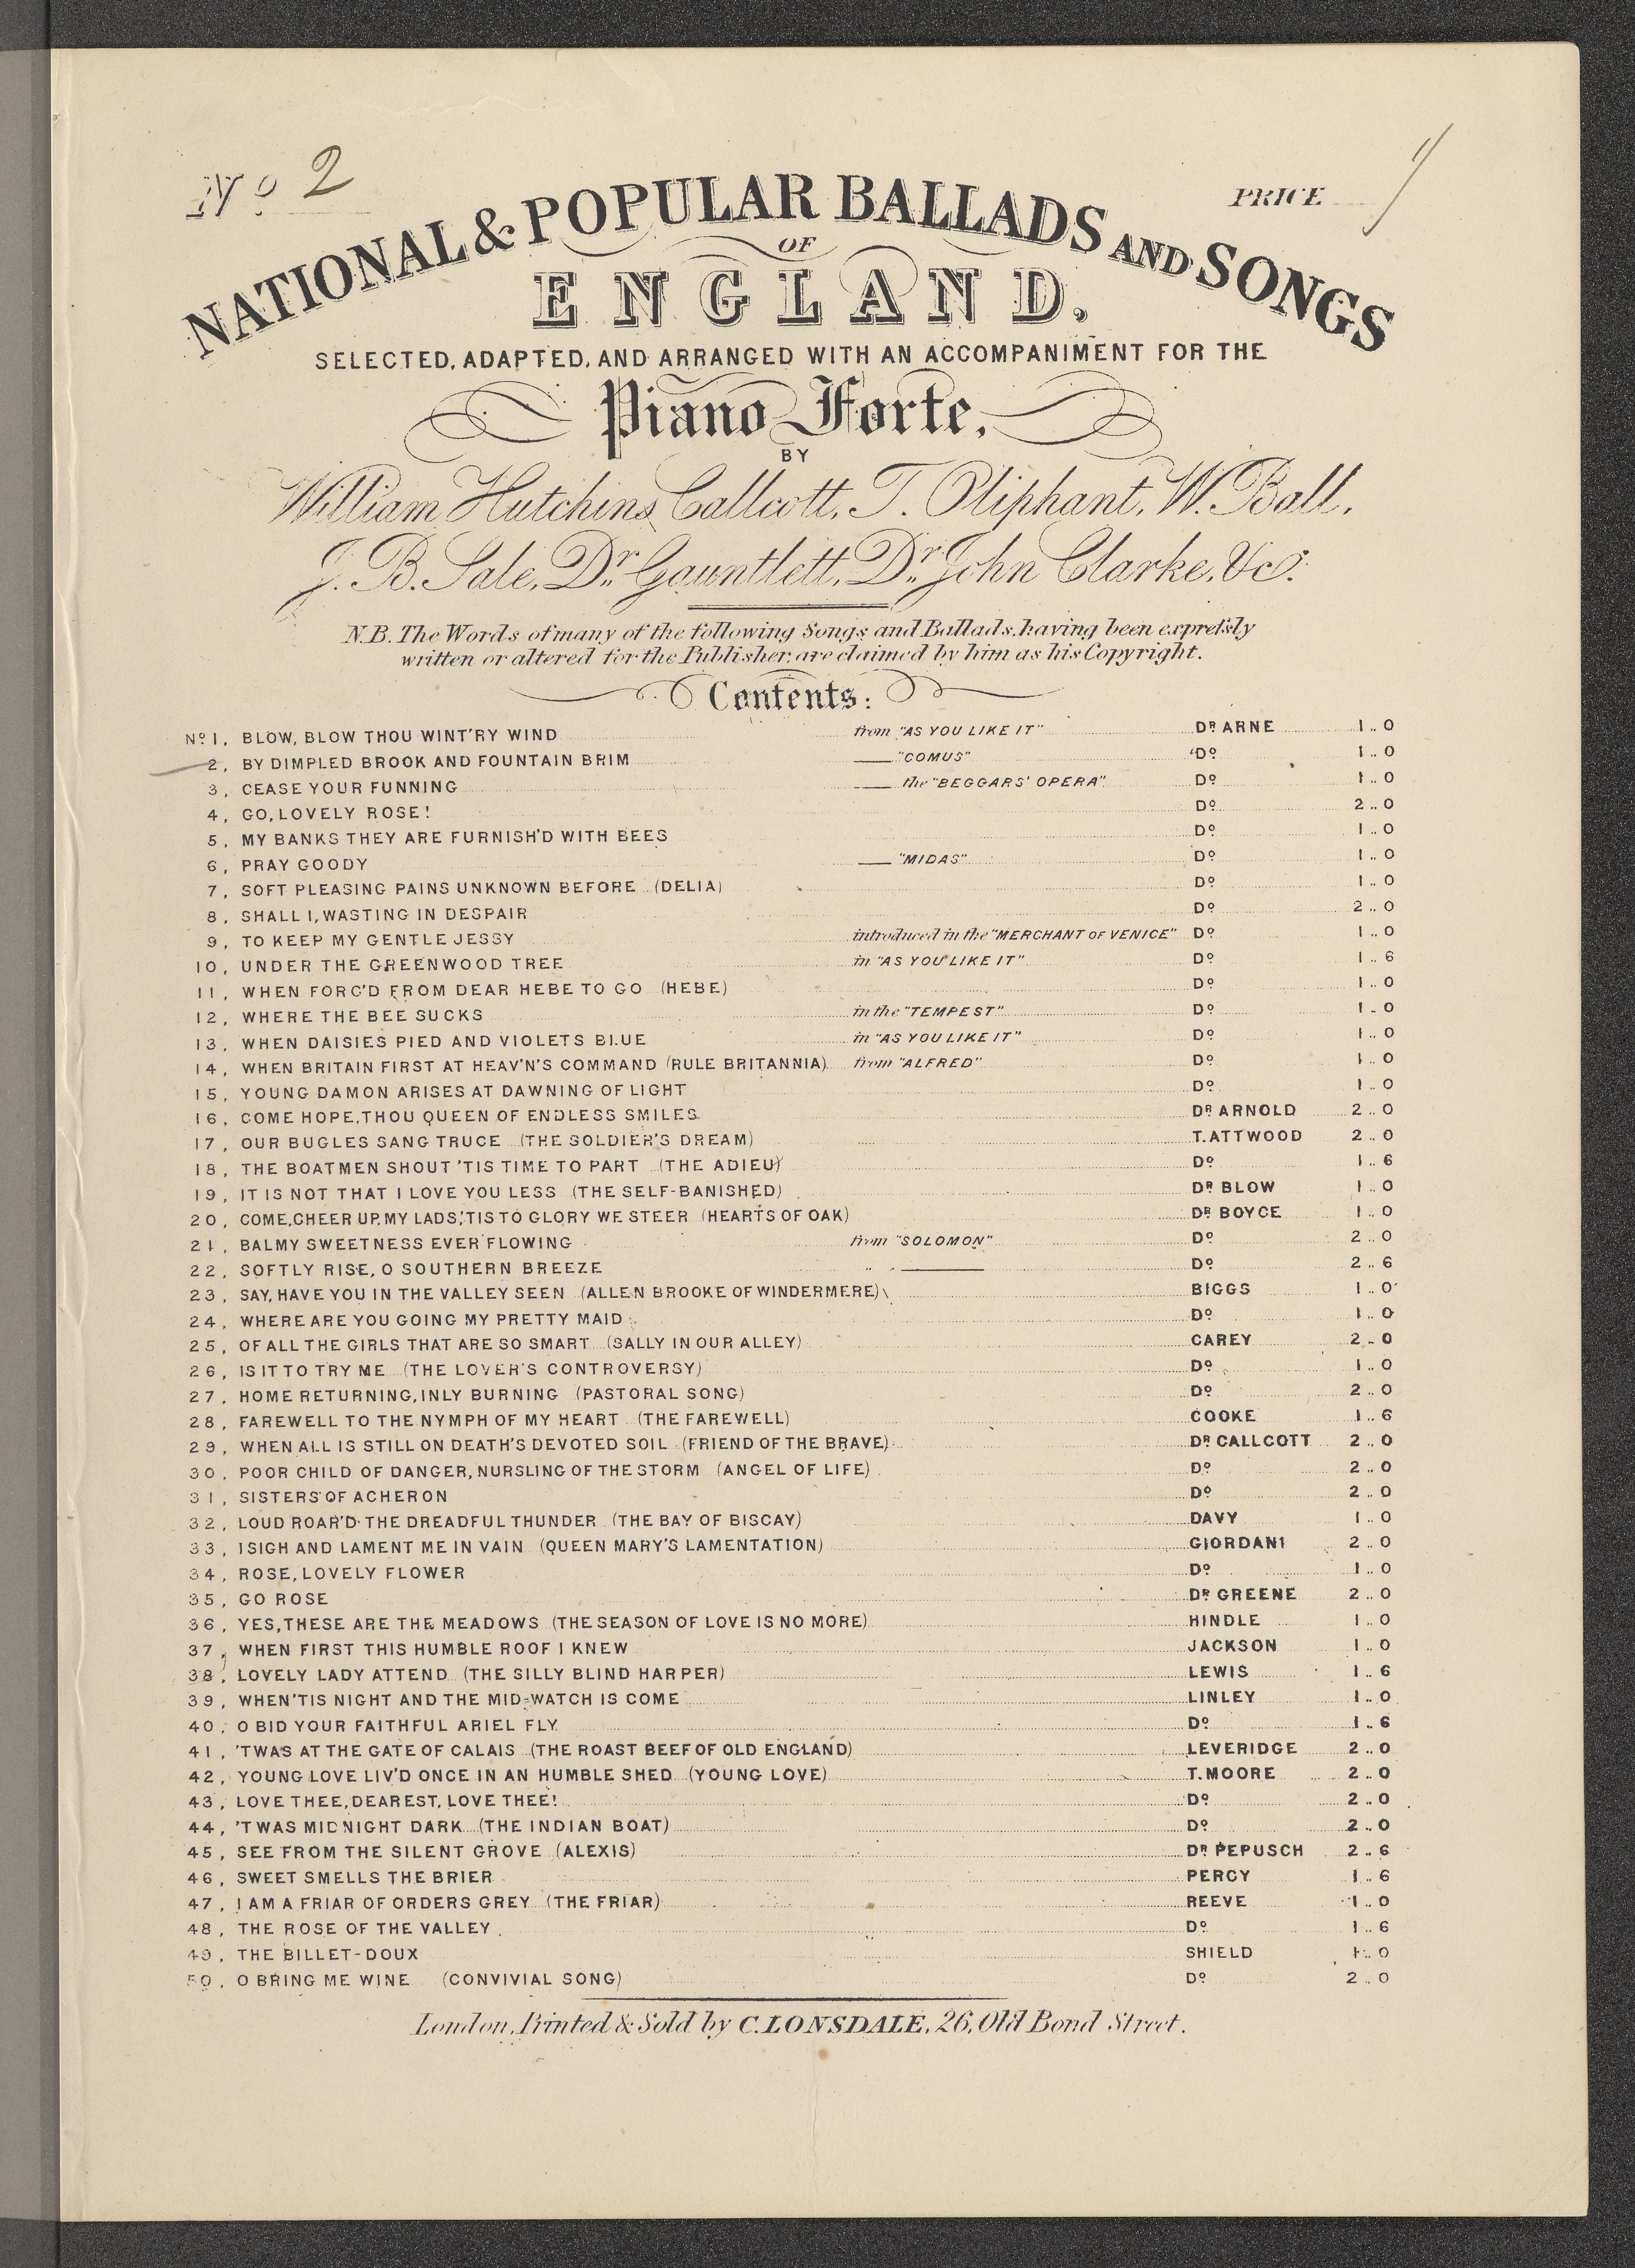 No 2
PRICE 1/
NATIONAL & POPULAR BALLADS AND SONGS
OF
ENGLAND,
SELECTED, ADAPTED, AND ARRANGED WITH AN ACCOMPANIMENT FOR THE
Piano Forte,
BY
William Hutchins Callcott, T. Oliphant, W. Ball,
J. B. Sale, Dr. Gauntlett, Dr. John Clarke, &c.
N.B. The Words of many of the following Songs and Ballads, having been expressly
written or altered for the Publisher, are claimed by him as his Copyright.
Contents:
No 1, BLOW, BLOW THOU WINT'RY WIND from "AS YOU LIKE IT" DR ARNE 1..0
2, BY DIMPLED BROOK AND FOUNTAIN BRIM "COMUS" Do 1..0
3, CEASE YOUR FUNNING the "BEGGARS' OPERA" Do 1..0
4, GO, LOVELY ROSE! Do 2..0
5, MY BANKS THEY ARE FURNISH'D WITH BEES Do 1..0
6, PRAY GOODY "MIDAS" Do 1..0
7, SOFT PLEASING PAINS UNKNOWN BEFORE (DELIA) Do 1..0
8, SHALL I, WASTING IN DESPAIR Do 2..0
9, TO KEEP MY GENTLE JESSY introduced in the "MERCHANT OF VENICE" Do 1..0
10, UNDER THE GREENWOOD TREE in "AS YOU LIKE IT" Do 1..6
11, WHEN FORC'D FROM DEAR HEBE TO GO (HEBE) Do 1..0
12, WHERE THE BEE SUCKS in the "TEMPEST" Do 1..0
13, WHEN DAISIES PIED AND VIOLETS BLUE in "AS YOU LIKE IT" Do 1..0
14, WHEN BRITAIN FIRST AT HEAV'N'S COMMAND (RULE BRITANNIA) from "ALFRED" Do 1..0
15, YOUNG DAMON ARISES AT DAWNING OF LIGHT Do 1..0
16, COME HOPE, THOU QUEEN OF ENDLESS SMILES DR ARNOLD 2..0
17, OUR BUGLES SANG TRUCE (THE SOLDIER'S DREAM) T. ATTWOOD 2..0
18, THE BOATMEN SHOUT 'TIS TIME TO PART (THE ADIEU) Do 1..6
19, IT IS NOT THAT I LOVE YOU LESS (THE SELF-BANISHED) DR BLOW 1..0
20, COME, CHEER UP, MY LADS, 'TIS TO GLORY WE STEER (HEARTS OF OAK) DR BOYCE 1..0
21, BALMY SWEETNESS EVER FLOWING from "SOLOMON" Do 2..0
22, SOFTLY RISE, O SOUTHERN BREEZE " Do 2..6
23, SAY, HAVE YOU IN THE VALLEY SEEN (ALLEN BROOKE OF WINDERMERE) BIGGS 1..0
24, WHERE ARE YOU GOING MY PRETTY MAID Do 1..0
25, OF ALL THE GIRLS THAT ARE SO SMART (SALLY IN OUR ALLEY) CAREY 2..0
26, IS IT TO TRY ME (THE LOVER'S CONTROVERSY) Do 1..0
27, HOME RETURNING, INLY BURNING (PASTORAL SONG) Do 2..0
28, FAREWELL TO THE NYMPH OF MY HEART (THE FAREWELL) COOKE 1..6
29, WHEN ALL IS STILL ON DEATH'S DEVOTED SOIL (FRIEND OF THE BRAVE) DR CALLCOTT 2..0
30, POOR CHILD OF DANGER, NURSLING OF THE STORM (ANGEL OF LIFE) Do 2..0
31, SISTERS OF ACHERON Do 2..0
32, LOUD ROAR'D THE DREADFUL THUNDER (THE BAY OF BISCAY) DAVY 1..0
33, I SIGH AND LAMENT ME IN VAIN (QUEEN MARY'S LAMENTATION) GIORDANI 2..0
34, ROSE, LOVELY FLOWER Do 1..0
35, GO ROSE DR GREENE 2..0
36, YES, THESE ARE THE MEADOWS (THE SEASON OF LOVE IS NO MORE) HINDLE 1..0
37, WHEN FIRST THIS HUMBLE ROOF I KNEW JACKSON 1..0
38, LOVELY LADY ATTEND (THE SILLY BLIND HARPER) LEWIS 1..6
39, WHEN 'TIS NIGHT AND THE MID-WATCH IS COME LINLEY 1..0
40, O BID YOUR FAITHFUL ARIEL FLY Do 1..6
41, 'TWAS AT THE GATE OF CALAIS (THE ROAST BEEF OF OLD ENGLAND) LEVERIDGE 2..0
42, YOUNG LOVE LIV'D ONCE IN AN HUMBLE SHED (YOUNG LOVE) T. MOORE 2..0
43, LOVE THEE, DEAREST, LOVE THEE! Do 2..0
44, 'TWAS MIDNIGHT DARK (THE INDIAN BOAT) Do 2..0
45, SEE FROM THE SILENT GROVE (ALEXIS) DR PEPUSCH 2..6
46, SWEET SMELLS THE BRIER PERCY 1..6
47, I AM A FRIAR OF ORDERS GREY (THE FRIAR) REEVE 1..0
48, THE ROSE OF THE VALLEY Do 1..6
49, THE BILLET-DOUX SHIELD 1..0
50, O BRING ME WINE (CONVIVIAL SONG) Do 2..0
London, Printed & Sold by C. LONSDALE, 26, Old Bond Street.